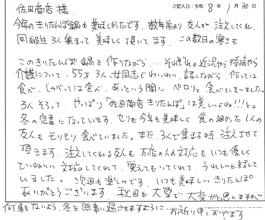 佐田商店 様
ご記入日:令和 8年 1月30日
今年のきりたんぽ鍋も美味しかったです。数年前より友人が注文してくれ、
同級生3人集まって美味しく頂いてます。この数日の寒さも
このきりたんぽ鍋を作りながら…それぞれの近況やら持病やら
介護について、55才3人女同志でわいわい話しながら、作っては
食べ、しゃべっては食べ、あという間にペロリと食べてしまいました。
3人そろって、やっぱり「佐田商店きりたんぽ」は美しいね!!!と
冬の定番になっています。セリも今年も美味しく食の細めな1人の
友人もモリモリ食べていました。また、3人で集まる時注文させて
頂きます。注文してくれる友人もお店の人の対応もいつも優しく
ていねいに対応してくれて、覚えてもいてくれて、うれしいと話して
いました。次回も楽しみです。いつも美味しいきりたんぽ
ありがとうございます。秋田も大雪で大変かと思いますので
何事もないよう、冬を無事に過ごせますように…
お祈り申しあげます